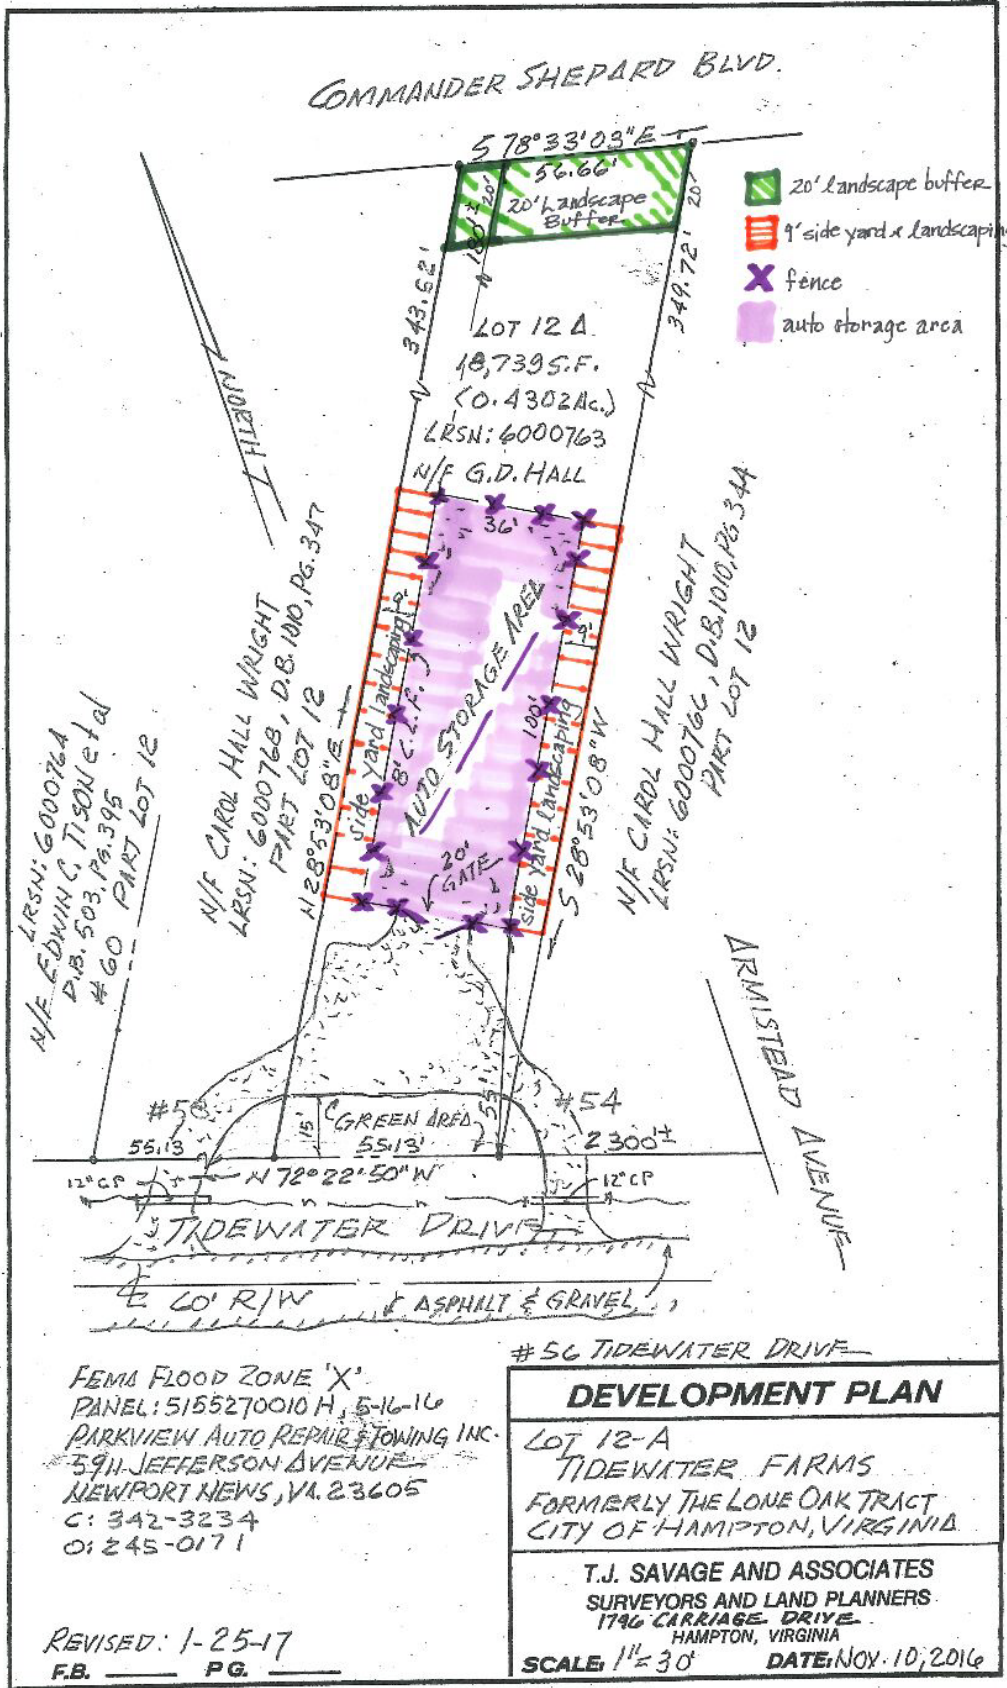 COMMANDER SHEPARD BLVD.
S 78°33'03"E
56.66'
20'
20'
20' Landscape
Buffer
180'±
20' landscape buffer
9' side yard & landscaping
fence
auto storage area
343.62'
349.72'
LOT 12 A
18,739 S.F.
(0.4302 Ac.)
LRSN: 6000763
N/F G.D. HALL
NORTH
36'
9'
9'
AUTO STORAGE AREA
side yard landscaping
8' C.L.F.
100'
side yard landscaping
20'
GATE
N 28°53'08"E
S 28°53'08"W
N/F CAROL HALL WRIGHT
LRSN: 6000768, D.B. 1010, PG. 347
PART LOT 12
N/F CAROL HALL WRIGHT
LRSN: 6000766, D.B. 1010, PG. 344
PART LOT 12
LRSN: 6000764
N/F EDWIN C. TISON et al
D.B. 503, PG. 395
#60 PART LOT 12
ARMISTEAD AVENUE
#58
#54
GREEN AREA
15'
55'
55.13
55.13'
2300'±
N 72°22'50"W
12" CP
12" CP
TIDEWATER DRIVE
60' R/W
ASPHALT & GRAVEL
#56 TIDEWATER DRIVE
FEMA FLOOD ZONE 'X'
PANEL: 5155270010 H, 5-16-16
PARKVIEW AUTO REPAIR & TOWING INC.
5911 JEFFERSON AVENUE
NEWPORT NEWS, VA. 23605
C: 342-3234
O: 245-0171
REVISED: 1-25-17
F.B. PG.
DEVELOPMENT PLAN
LOT 12-A
TIDEWATER FARMS
FORMERLY THE LONE OAK TRACT
CITY OF HAMPTON, VIRGINIA
T.J. SAVAGE AND ASSOCIATES
SURVEYORS AND LAND PLANNERS
1796 CARRIAGE DRIVE
HAMPTON, VIRGINIA
SCALE: 1"=30' DATE: NOV. 10, 2016